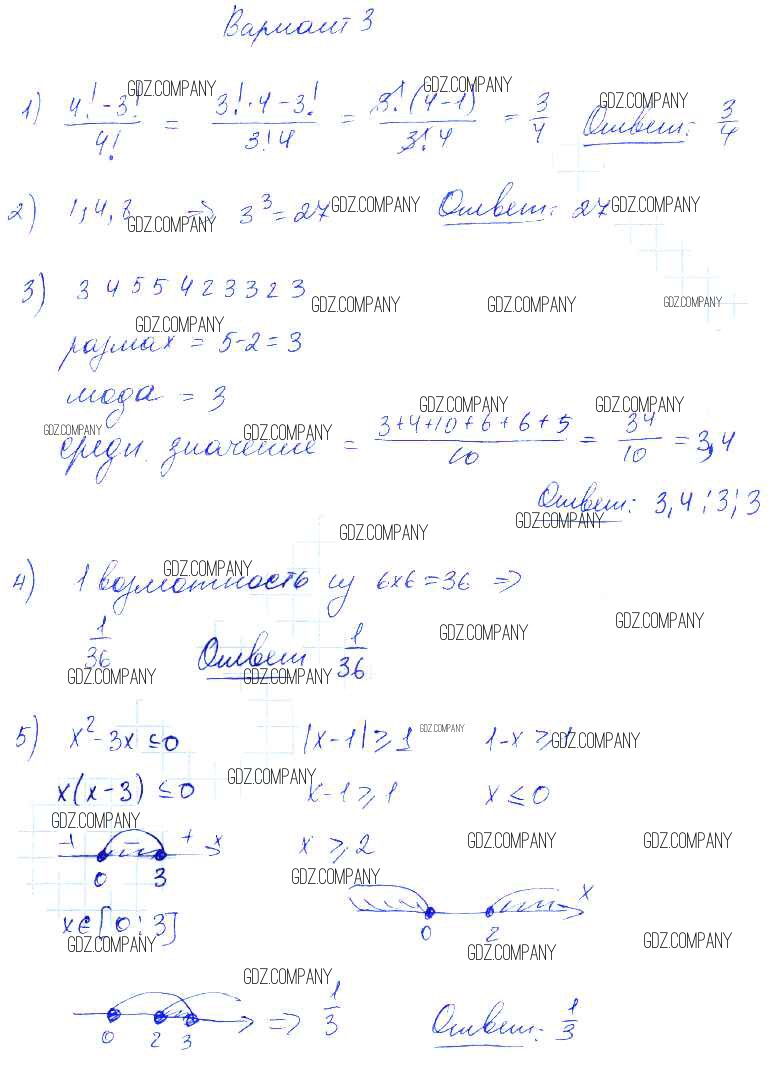 Вариант 3
GDZ.COMPANY GDZ.COMPANY GDZ.COMPANY
1) (4! - 3!)/4! = (3! · 4 - 3!)/(3! 4) = (3! (4-1))/(3! 4) = 3/4 Ответ: 3/4
2) 1, 4, 8 => 3³ = 27 GDZ.COMPANY Ответ: 27 GDZ.COMPANY
GDZ.COMPANY
3) 3 4 5 5 4 2 3 3 2 3
GDZ.COMPANY GDZ.COMPANY GDZ.COMPANY
GDZ.COMPANY
размах = 5-2=3
мода = 3
GDZ.COMPANY GDZ.COMPANY
GDZ.COMPANY GDZ.COMPANY
средн. значение = (3+4+10+6+6+5)/10 = 34/10 = 3,4
Ответ: 3,4; 3; 3
GDZ.COMPANY
GDZ.COMPANY
GDZ.COMPANY
4) 1 возможность из 6x6=36 =>
GDZ.COMPANY GDZ.COMPANY
1/36 Ответ 1/36
GDZ.COMPANY GDZ.COMPANY
5) x² - 3x ≤ 0 |x-1| ≥ 1 GDZ.COMPANY 1-x ≥ 1 GDZ.COMPANY
GDZ.COMPANY
x(x-3) ≤ 0 x-1 ≥ 1 x ≤ 0
GDZ.COMPANY
+ - + x x ≥ 2 GDZ.COMPANY GDZ.COMPANY
0 3 GDZ.COMPANY
x
x∈[0; 3] 0 2
GDZ.COMPANY GDZ.COMPANY GDZ.COMPANY
GDZ.COMPANY
0 2 3 => 1/3 Ответ: 1/3